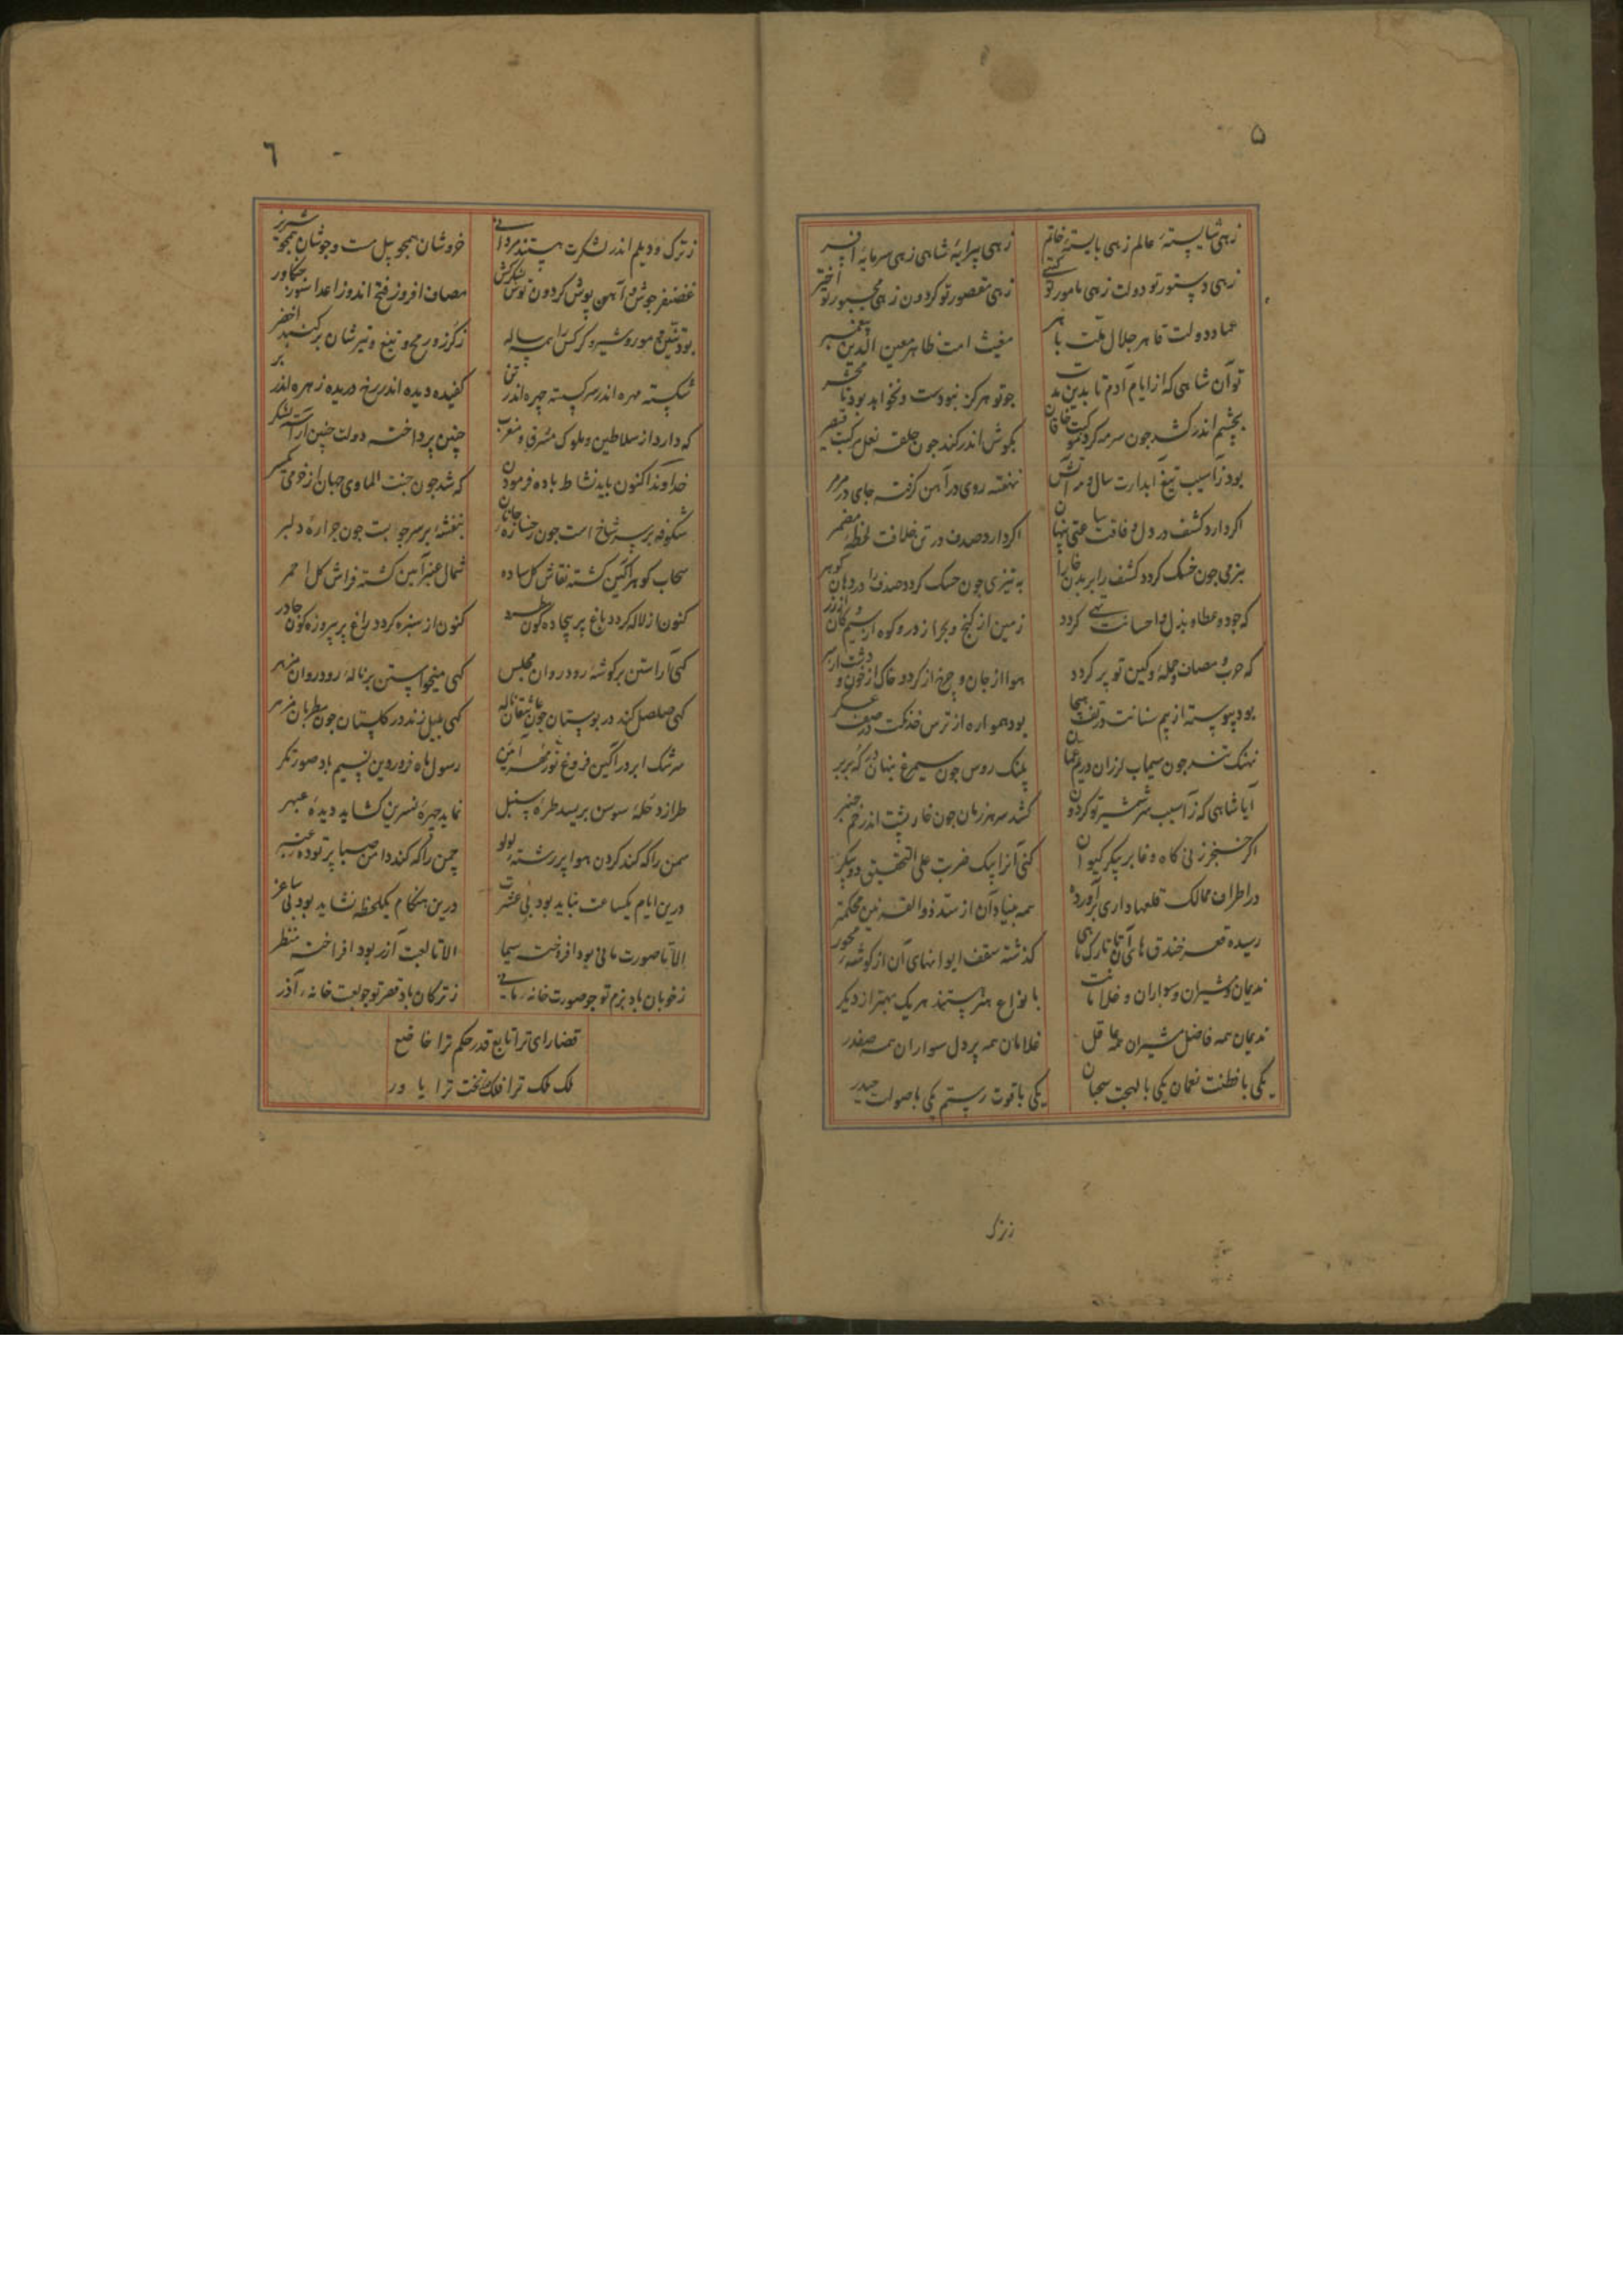 ۵
زهی شایستهٔ عالم زهی بایستهٔ خاتم زهی پیرایهٔ شاهی زهی سرمایهٔ افسر
زهی دستور تو دولت زهی مامور تو گیتی زهی مقصور تو کردون زهی مجبور تو اختر
عماد دولت قاهر جلال ملت باهر مغیث امت ظاهر معین الدین پیغمبر
تو آن شاهی که از ایام آدم تا بدین مدت جو تو هرکز نبودست و نخواهد بود تا محشر
بچشم اندر کشد جون سرمه کرد موکبت خاقان بکوش اندر کند جون حلقه نعل مرکبت قیصر
بود ز آسیب تیغ آبدارت سال و مه آتش نهفته روی در آهن کرفته جای در مرمر
اکر دارد کشف در دل وفاقت ساعتی پنهان اکر دارد صدف در تن خلافت لحظهٔ مضمر
بنرمی جون خسک کردد کشف را بر بدن خارا به تیزی جون خسک کردد صدف را در دهان کوهر
که جود و عطا و بذل و احسانت تهی کردد زمین از کنج و بحر از در و کوه از سیم و کان از زر
که حرب و مصاف و حملهٔ و کین تو پر کردد هوا از جان و چرخ از کرد و خاک از خون و دشت از سر
بود پیوسته از بیم سنانت در تف هیجا بود همواره از ترس خدنکت در صف عسکر
نهنک تند جون سیماب لرزان در یم عمان پلنک روس جون سیمرغ پنهان در که بربر
آیا شاهی که ز آسیب سر شمشیر تو کردون کشد سر هر زمان جون خار پشت اندر خم چنبر
اکر خنجر زنی کاه وغا بر پیکر کیوان کنی آنرا بیک ضربت علی التحقیق دو پیکر
در اطراف ممالک قلعها داری برآورده همه بنیاد آن از سد ذوالقرنین محکمتر
رسیده قعر خندق های آن تا تارک ماهی کذشته سقف ایوانهای آن از کوشهٔ محور
ندیمان و مشیران و سواران و غلامانت بانواع هنر هستند هر یک بهتر از دیکر
ندیمان همه فاضل مشیران همه عاقل غلامان همه پر دل سواران همه صفدر
یکی با فطنت نعمان یکی با لهجت سحبان یکی با قوت رستم یکی با صولت حیدر
زترک
٦
ز ترک و دیلم اندر لشکرت هستند مردانی خروشان همجو پیل مست و جوشان همجو شیر نر
غضنفر جوش و آهن پوش کردون توش لشکرکش مصاف افروز فتح اندوز اعدا سوز جنکاور
بود تنین و مور و شیر و کرکس را همه ساله ز کرز و رمح و تیغ و تیرشان بر کنبد اخضر
شکسته مهره اندر سر کسسته چهره اندر تن کفیده دیده اندر رخ دریده زهره اندر بر
که دارد از سلاطین و ملوک مشرق و مغرب چنین پرداخته دولت چنین آراسته لشکر
خداوندا کنون باید نشاط باده فرمودن که شد جون جنت الماوی جهان از خرمی یکسر
شکوفه بر سر شاخ است جون رخسارهٔ جانان بنفشه بر سر جو بست جون جرارهٔ دلبر
سحاب کوهرآکین کشته نقاش کل ساده شمال عنبرآمین کشته فراش کل احمر
کنون از لاله کردد باغ پر بیجاده کون کنون از سبزه کردد راغ پر پیروزه کون چادر
کهی آراستن بر کوشهٔ رود روان مجلس کهی میخواستن بر نالهٔ رود روان مزهر
کهی صلصل کند در بوستان جون عاشقان ناله کهی بلبل زند در کلستان جون مطربان مزمر
سرشک ابر در آکین فروغ نور مهر آئین رسول ماه فروردین نسیم باد صورتکر
طرازد حلهٔ سوسن بریسد طرهٔ سنبل نماید چهرهٔ نسرین کشاید دیدهٔ عبهر
سمن را که کند کردن هوا پر رشتهٔ لولو چمن را که کند دامن صبا پر تودهٔ عنبر
درین ایام یکساعت نباید بود بی عشرت درین هنکام یکلحظه نشاید بود بی ساغر
الا تا صورت مانی بود افروخته سیما الا تا لعبت آزر بود افراخته منظر
ز خوبان باد بزم تو جو صورت خانهٔ مانی ز ترکان باد قصر تو جو لعبت خانهٔ آذر
قضا رای ترا تابع قدر حکم ترا خاضع
ملک ملک ترا فلک بخت ترا یاور